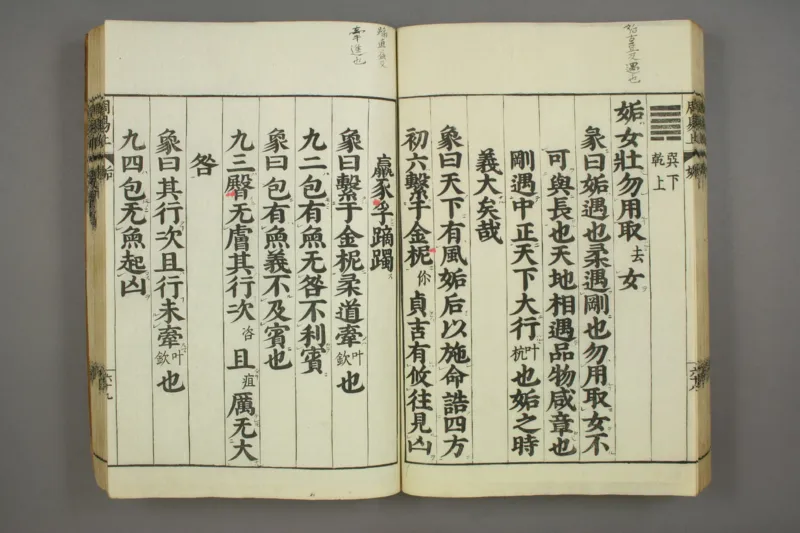 巽下
乾上
姤女壯勿用取去女
彖曰姤遇也柔遇剛也勿用取女不
可與長也天地相遇品物咸章也
剛遇中正天下大行叶杭也姤之時
義大矣哉
象曰天下有風姤后以施命誥四方
初六繫于金柅你貞吉有攸往見凶
羸豕孚蹢躅
象曰繫于金柅柔道牽叶欽也
九二包有魚无咎不利賓
象曰包有魚義不及賓也
九三臀无膚其行次咨且疽厲无大
咎
象曰其行次且行未牽叶欽也
九四包无魚起凶